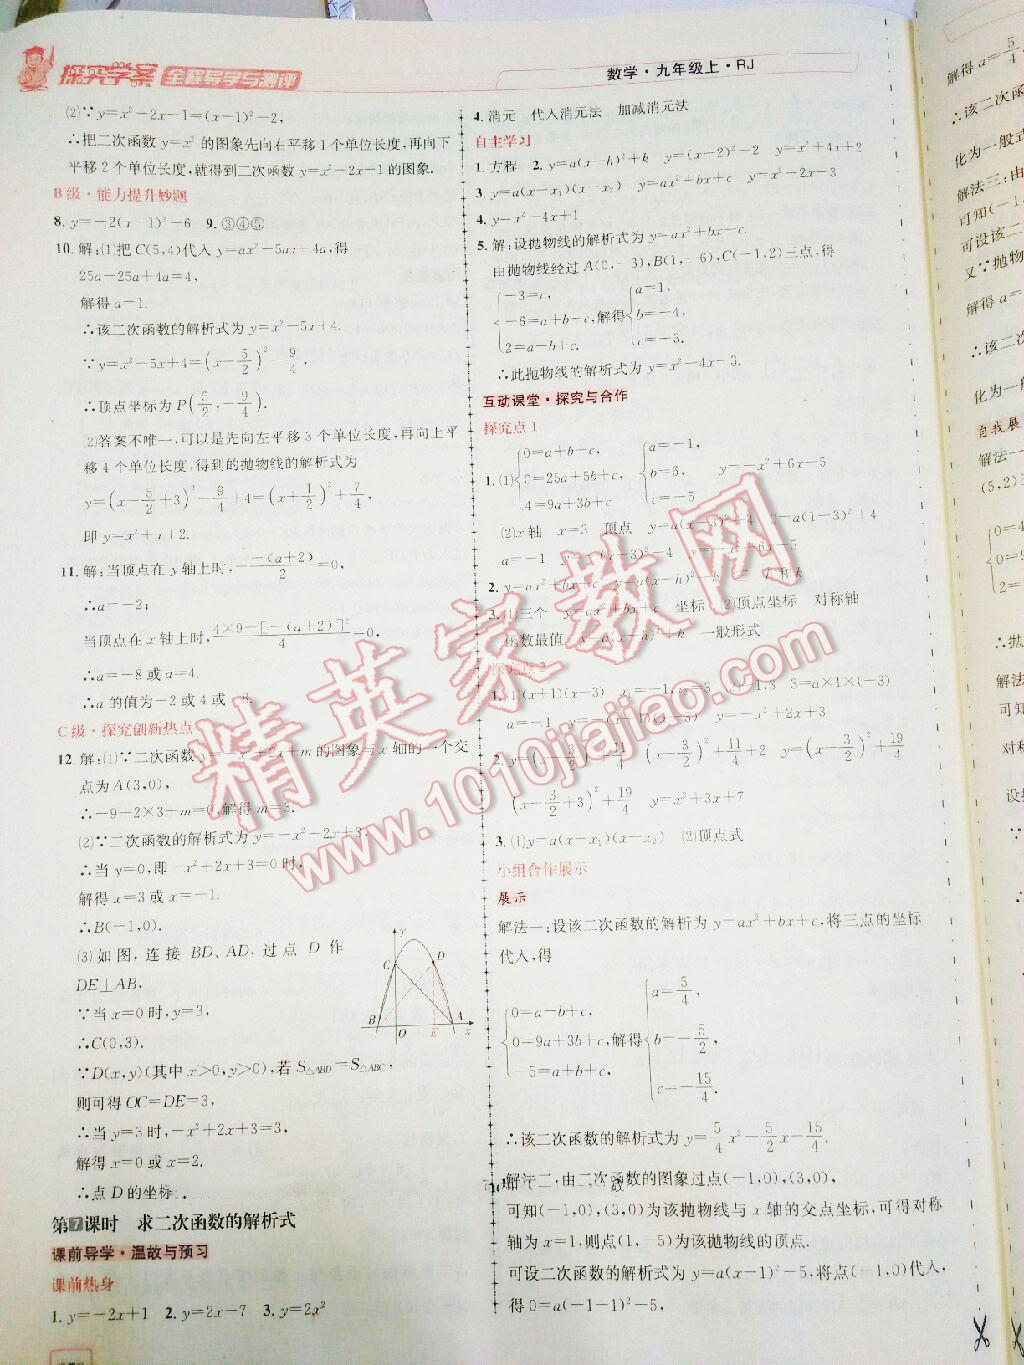 探究学案 全程导学与测评
数学·九年级上·RJ
(2)∵y=x²-2x-1=(x-1)²-2,
∴把二次函数y=x²的图象先向右平移1个单位长度,再向下
平移2个单位长度,就得到二次函数y=x²-2x-1的图象.
B级·能力提升妙题
8. y=-2(x-1)²-6 9. ③④⑤
10. 解:(1)把C(5,4)代入y=ax²-5ax+4a,得
25a-25a+4a=4,
解得a=1.
∴该二次函数的解析式为y=x²-5x+4.
∵y=x²-5x+4=(x-5/2)²-9/4,
∴顶点坐标为P(5/2,-9/4).
(2)答案不唯一,可以是先向左平移3个单位长度,再向上平
移4个单位长度,得到的抛物线的解析式为
y=(x-5/2+3)²-9/4+4=(x+1/2)²+7/4,
即y=x²+x+2.
11. 解:当顶点在y轴上时,-\frac{-(a+2)}{2}=0,
∴a=-2;
当顶点在x轴上时,\frac{4×9-[-(a+2)]²}{4}=0,
∴a=-8或a=4.
∴a的值为-2或4或
C级·探究创新热点
12 解:(1)∵二次函数y=-x²+2x+m的图象与x轴的一个交
点为A(3,0),
∴-9-2×3+m=0,解得m=3.
(2)∵二次函数的解析式为y=-x²-2x+3.
∴当y=0,即-x²+2x+3=0时,
解得x=3或x=-1.
∴B(-1,0).
(3)如图,连接BD、AD.过点D作
DE⊥AB,
∵当x=0时,y=3,
∴C(0,3).
∵D(x,y)(其中x>0,y>0),若S△ABD=S△ABC,
则可得OC=DE=3,
∴当y=3时,-x²+2x+3=3,
解得x=0或x=2.
∴点D的坐标
y
C D
B O E A x
第7课时 求二次函数的解析式
课前导学·温故与预习
课前热身
1. y=-2x+1 2. y=2x-7 3. y=2x²
4. 消元 代入消元法 加减消元法
自主学习
1. 方程 2. y=a(x-h)²+k y=(x-2)²-2 y=x²+4x+2
3. y=a(x-x₁)(x-x₂) y=ax²+bx+c y=x²-2x-3
4. y=x²-4x+1
5. 解:设抛物线的解析式为y=ax²+bx-c.
由抛物线经过A(0,-3),B(1,-6),C(-1,2)三点,得
{-3=c, -6=a+b-c, 2=a-b+c. 解得{a=1, b=-4, c=-3.
∴此抛物线的解析式为y=x²-4x-3.
互动课堂·探究与合作
探究点1
1. (1){0=a+b+c, 0=25a+5b+c, 4=9a+3b+c {a=-1, b=6, c=-5 y=-x²+6x-5
(2)x轴 x=3 顶点 y=a(x-3)²+4 0=a(1-3)²+4
a=-1 y=-(x-3)²+4 y=-x²+6x-5
2. y=ax²+bx+c y=a(x-h)²+k
3. (1)三个 y=ax²+bx+c 坐标 (2)顶点坐标 对称轴
函数最值 y=a(x-h)²+k 一般形式
探究点2
1. (1)(x+1)(x-3) x₁=-1,x₂=3 -1,3 3=a×1×(-3)
a=-1 y=-x²+2x+3
2. (x-3/2)²+11/4 (x-3/2)²+11/4+2 y=(x-3/2)²+19/4
(x-3/2+3)²+19/4 y=x²+3x+7
3. (1)y=a(x-x₁)(x-x₂) (2)顶点式
小组合作展示
展示
解法一:设该二次函数的解析为y=ax²+bx+c,将三点的坐标
代入,得
{0=a-b+c, 0-9a+3b+c, -5=a+b+c, 解得{a=5/4, b=-5/2, c=-15/4.
∴该二次函数的解析式为y=5/4x²-5/2x-15/4.
解法二:由二次函数的图象过点(-1,0),(3,0),
可知(-1,0),(3,0)为该抛物线与x轴的交点坐标,可得对称
轴为x=1.则点(1,-5)为该抛物线的顶点.
可设二次函数的解析式为y=a(x-1)²-5,将点(-1,0)代入,
得0=a(-1-1)²-5,
解得a=5/4
∴该二次函
化为一般式
解法三:由
可知(-1,
可设该二
又∵抛物
解得a=
∴该二次
化为一般
自我展
解法一
(5,2)
0=4
0=9
2=
∴抛
解法
可知
对称
设
精英家教网
www.1010jiajiao.com